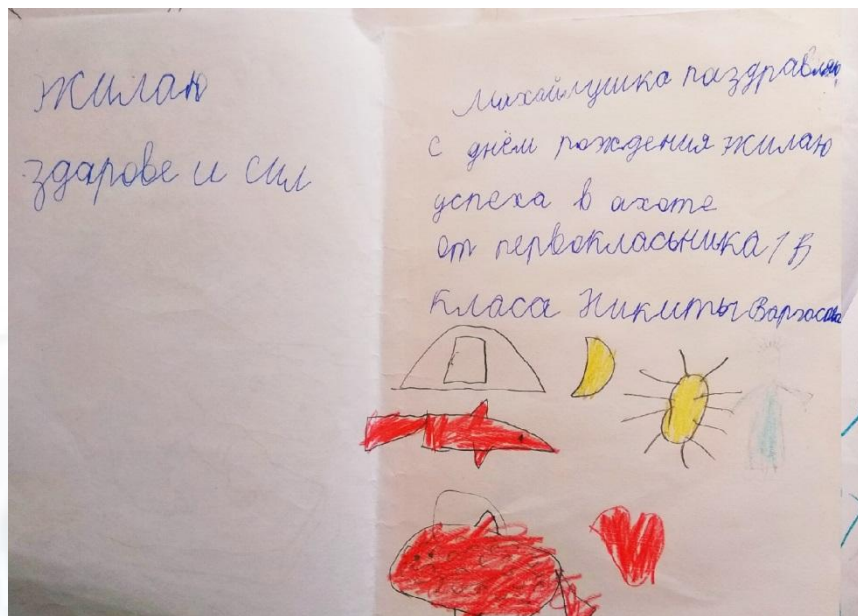 жилаю
здарове и сил
Махайлушка паздравляю
с днём рождения жилаю
успеха в ахоте
от первокласьника 1 В
класа Никиты